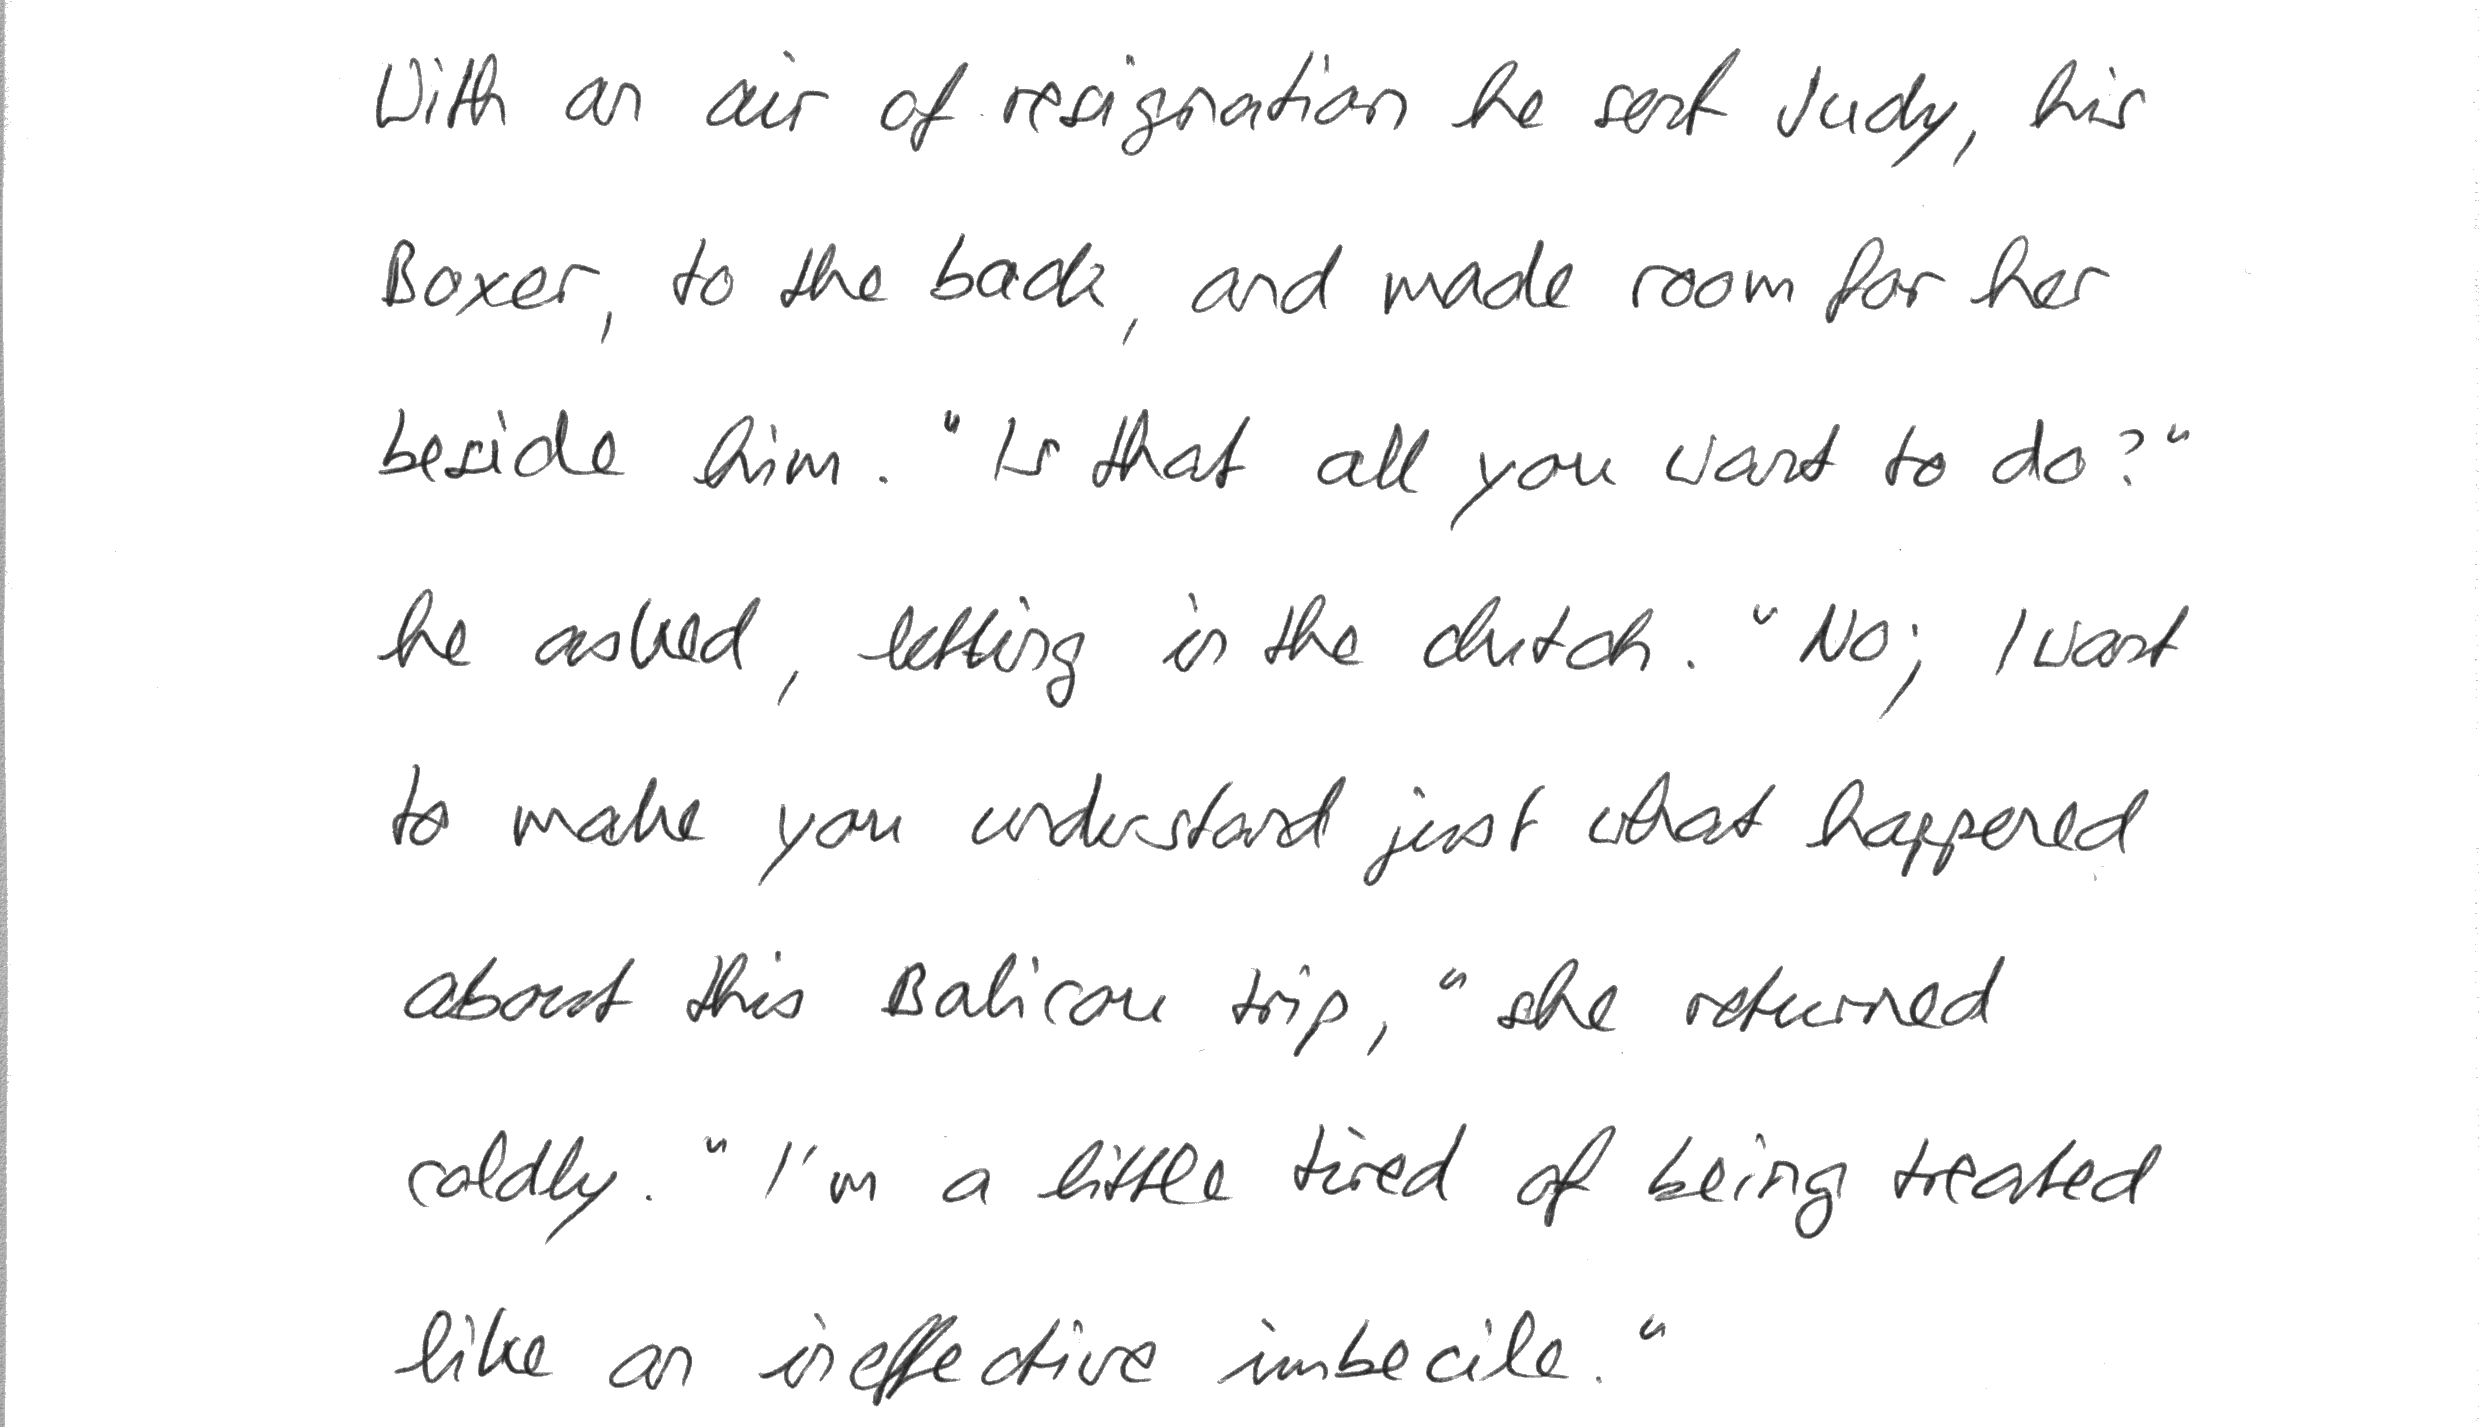 With an air of resignation he sent Judy, his
Boxer, to the back, and made room for her
beside him. "Is that all you want to do?"
he asked, letting in the clutch. "No; I want
to make you understand just what happened
about this Balicou trip," she returned
coldly. "I'm a little tired of being treated
like an ineffective imbecile."